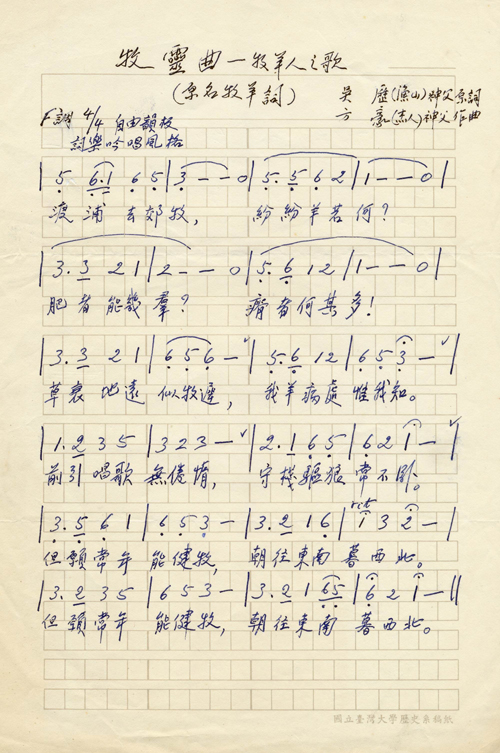 牧靈曲—牧羊人之歌
(原名牧羊詞)
吳 歷(漁山)神父原詞
方 豪(杰人)神父作曲
F調 4/4 自由韻板
詞樂吟唱風格
|5 6·1 6 5|3 — — 0|5.5 6 2|1 — — 0|
渡浦去郊牧, 紛紛羊若何?
|3.3 2 1|2 — — 0|5.6 1 2|1 — — 0|
肥者能幾羣? 瘠者何其多!
|3.3 2 1|6 5 6 —|5.6 1 2|6 5 3 —||
草衰地遠似牧遲, 我羊病處惟我知。
|1.2 3 5|3 2 3 —|2.1 6 5|6 2 1 —|
前引唱歌無倦惰, 守棧驅狼常不臥。
rit
|3.5 6 1|6 5 3 —|3.2 1 6|1 3 2 —|
但願常年能健牧, 朝往東南暮西北。
|3.2 3 5|6 5 3 —|3.2 1 6 5|6 2 1 —||
但願常年能健牧, 朝往東南暮西北。
國立臺灣大學歷史系稿紙